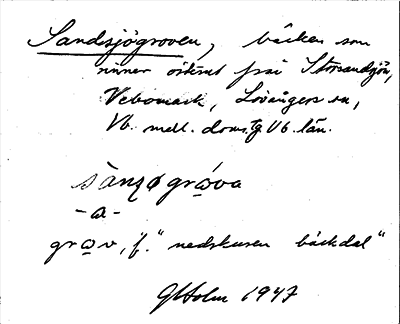 Sandsjögroven, bäcken som
rinner österut från Storsandsjön,
Vebomark, Lövångers sn,
Vb. mell. doms. Vb. län.
sànʒøgrò̠va
-a-
gro̠v, f. "nedskuren bäckdal"
GHolm 1947